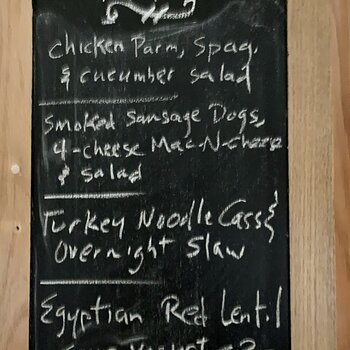 Chicken Parm, Spag,
& cucumber salad
Smoked Sausage Dogs,
4-cheese Mac-N-Cheese
& salad
Turkey Noodle Cass &
Overnight Slaw
Egyptian Red Lentil